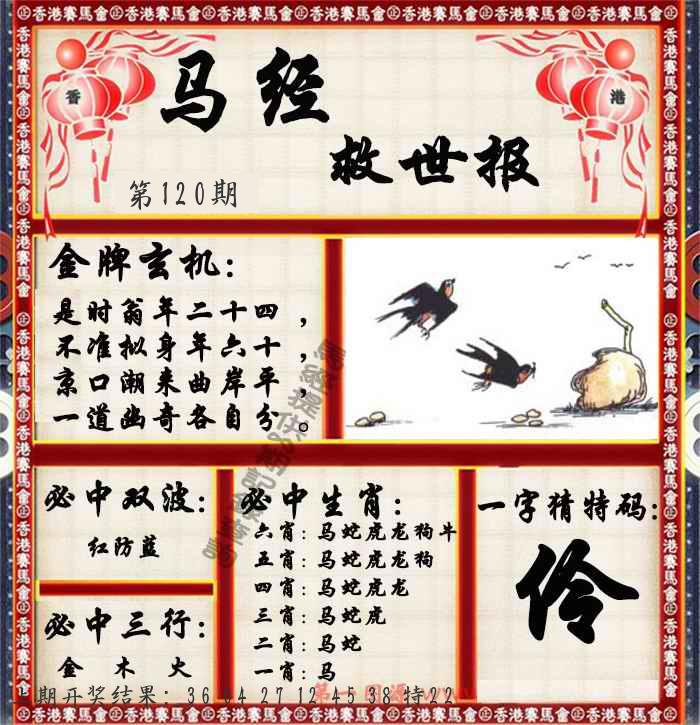 香港賽馬會 香港賽馬會 香港賽馬會 香港賽馬會 香港賽馬會 香港賽馬會 香港賽馬會 香港賽馬會
香 港
马经
救世报
第120期
金牌玄机：
是时翁年二十四，
不准拟身年六十，
京口潮来曲岸平，
一道幽奇各自分。
必中双波：
红防蓝
必中三行：
金 木 火
必中生肖：
六肖：马蛇虎龙狗牛
五肖：马蛇虎龙狗
四肖：马蛇虎龙
三肖：马蛇虎
二肖：马蛇
一肖：马
一字猜特码：
伶
期开奖结果：36 04 27 12 45 38 特22
第一图源